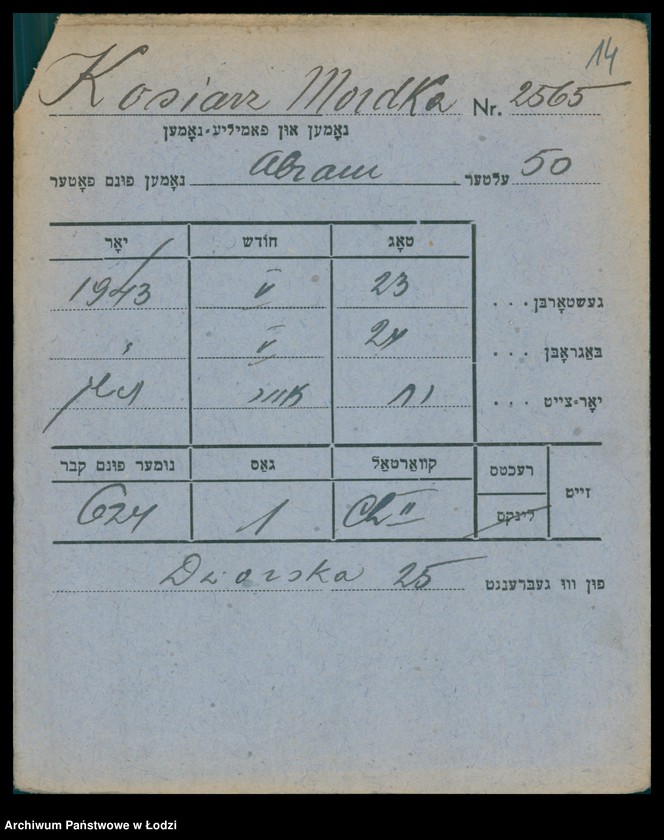 14
Kosiarz Mordka Nr. 2565
נאָמען און פאַמיליע-נאָמען
נאָמען פונם פאָטער Abram עלטער 50
טאָג חודש יאָר
געשטאָרבן . . . 23 V 1943
באַגראָבן . . . 24 V "
יאָר-צייט . . . אייר
זייט רעכטס קוואַרטאַל גאַס נומער פונם קבר
לינקס II 1 624
פון וווּ געברענגט 25
Archiwum Państwowe w Łodzi